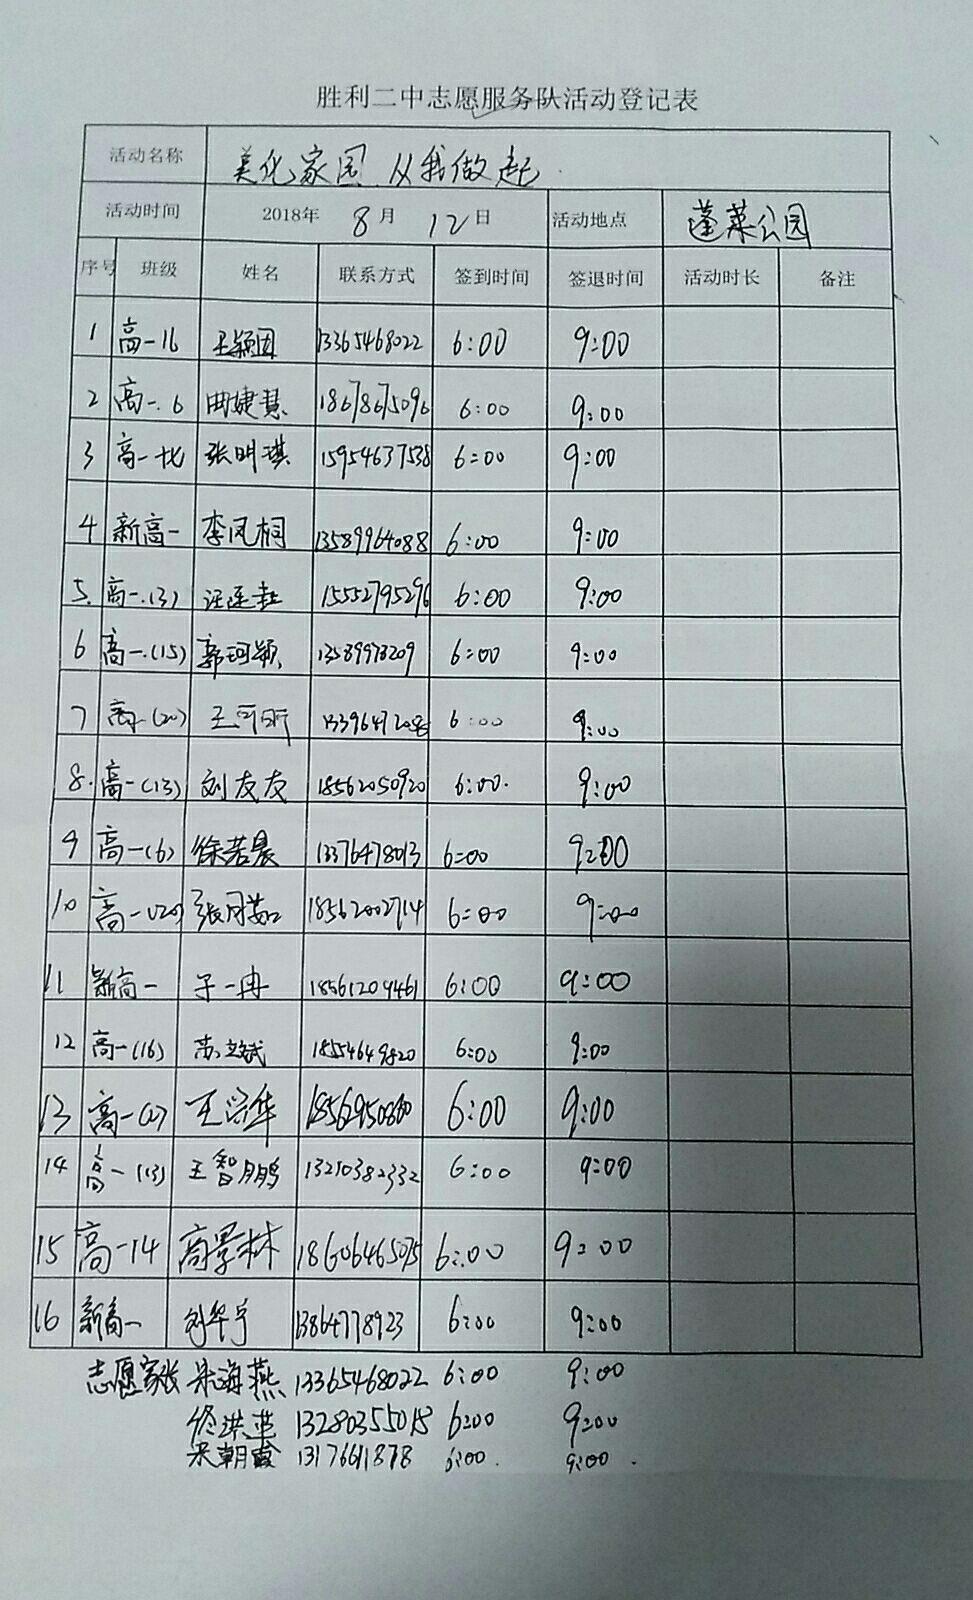 胜利二中志愿服务队活动登记表
活动名称 美化家园 从我做起
活动时间 2018年 8月 12日 活动地点 蓬莱公园
序号 班级 姓名 联系方式 签到时间 签退时间 活动时长 备注
1 高一16 13365468022 6:00 9:00
2 高一.6 曲婕慧 18678675096 6:00 9:00
3 高一 张明琪 15954637538 6:00 9:00
4 新高一 李凤桐 13589964088 6:00 9:00
5. 高一.(3) 15552795296 6:00 9:00
6 高一.(15) 郭珂颖 13589978209 6:00 9:00
7 高一(20) 王可昕 6:00 9:00
8. 高一(13) 刘友友 18562050920 6:00. 9:00
9 高一(6) 徐若晨 13376478013 6:00 9:00
10 高一(20) 张月茹 18562002714 6:00 9:00
11 新高一 于一冉 18561209461 6:00 9:00
12 高一(16) 18554649820 6:00 9:00
13 高一 6:00 9:00
14 高一(13) 王智鹏 13210382332 6:00 9:00
15 高一14 商景林 18606465075 6:00 9:00
16 新高一 刘华宇 13864778923 6:00 9:00
志愿家长 宋海燕 13365468022 6:00 9:00
13280355018 6:00 9:00
宋朝霞 13176611878 6:00. 9:00.